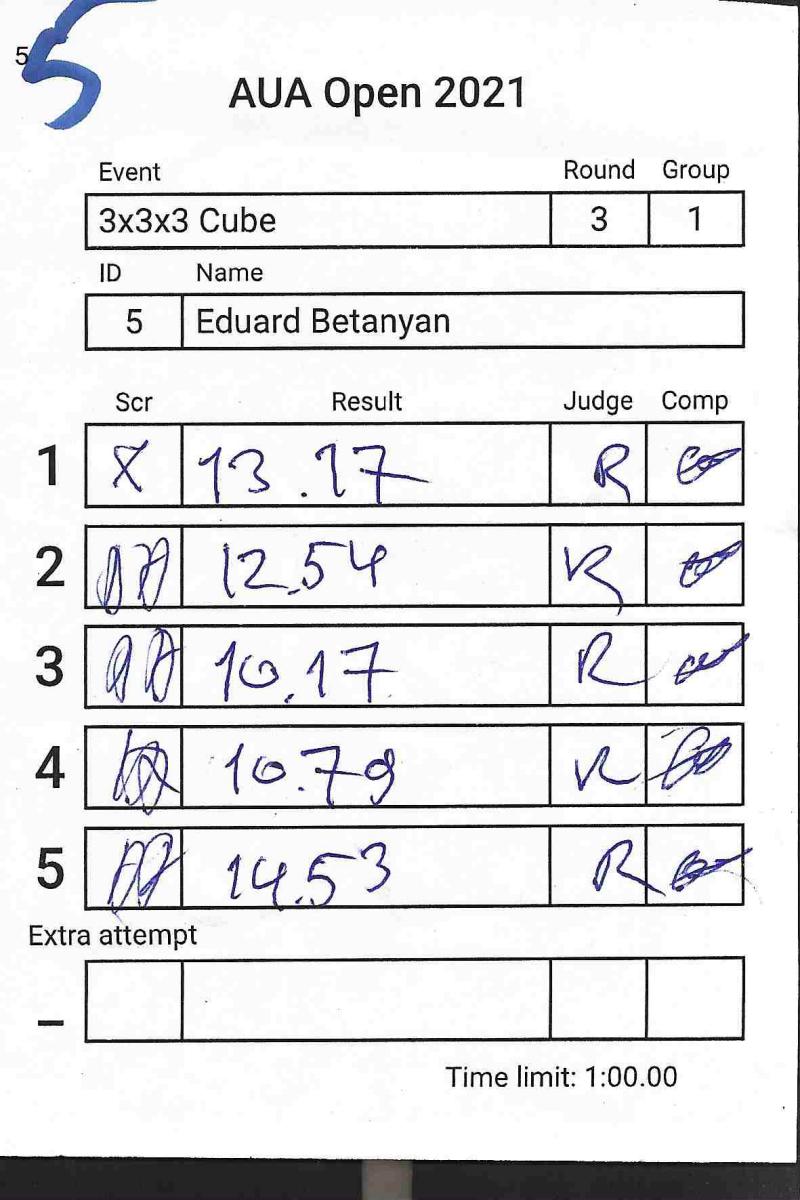 5
5
AUA Open 2021
Event Round Group
3x3x3 Cube 3 1
ID Name
5 Eduard Betanyan
Scr Result Judge Comp
1 13.17 R
2 12.54 R
3 10.17 R
4 10.79 R
5 14.53 R
Extra attempt
–
Time limit: 1:00.00